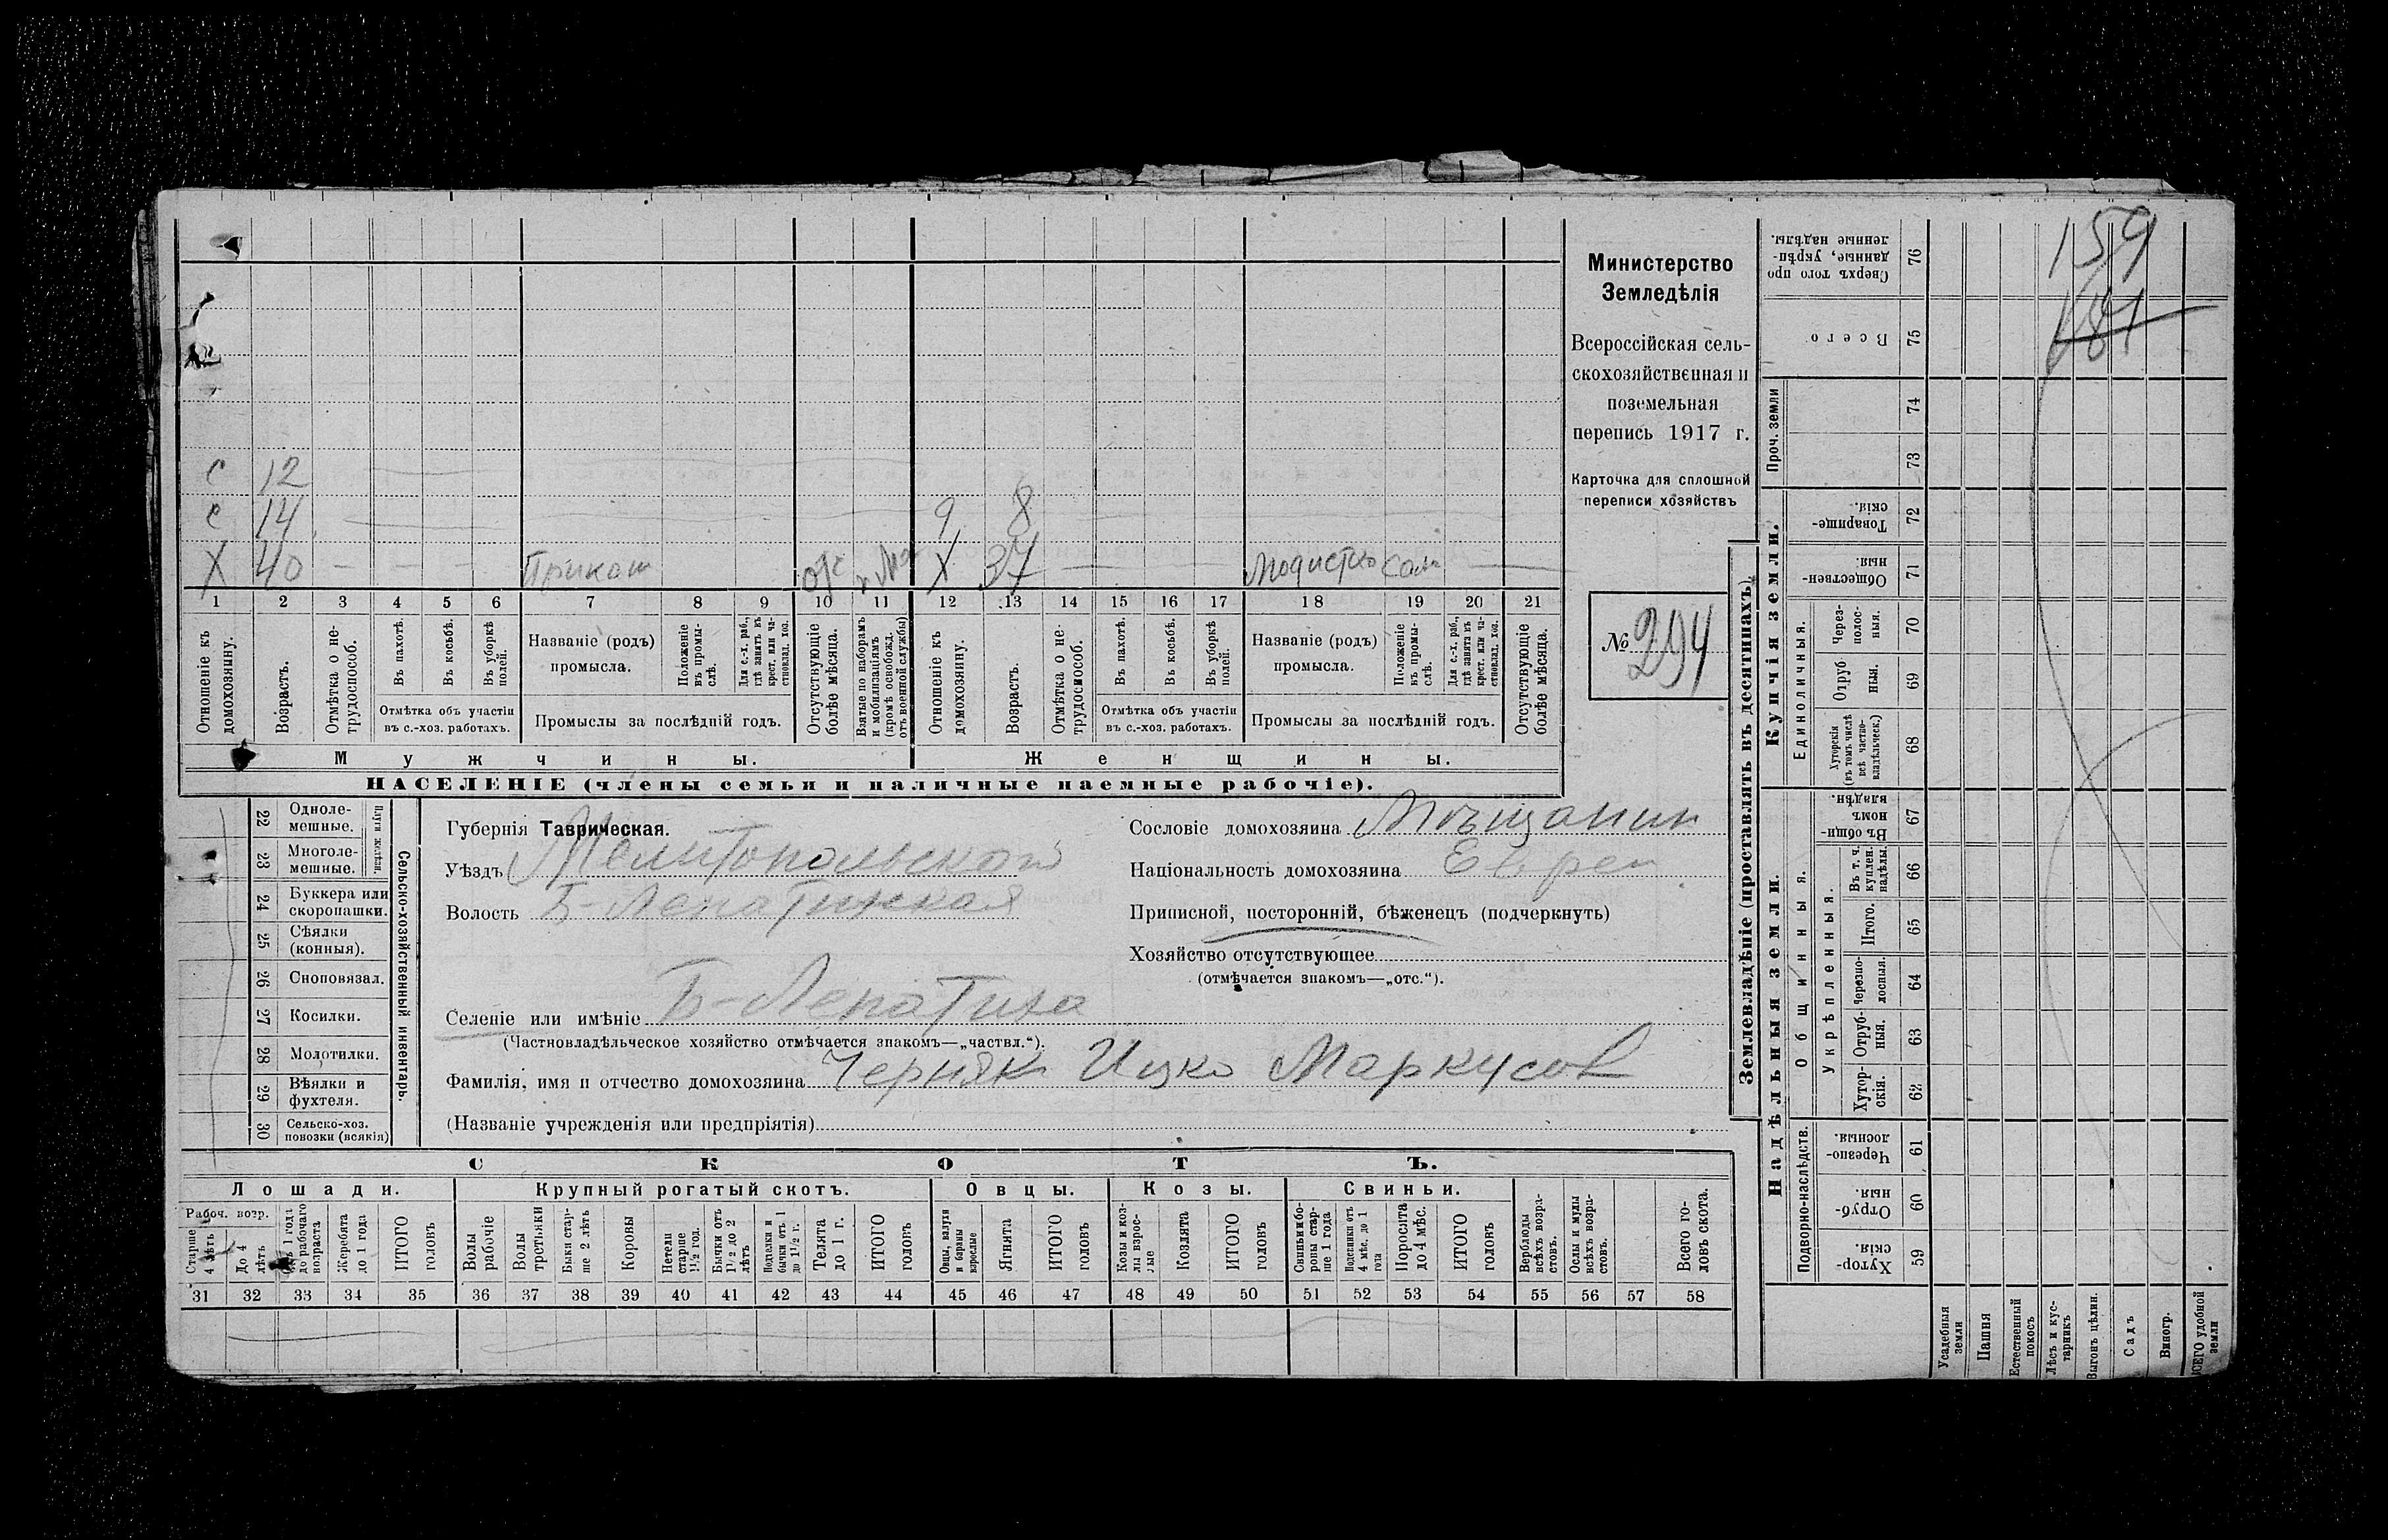 159
181
с 12
с 14 9 8
Х 40 Прикащ Х 37 модистка
1 2 3 4 5 6 7 8 9 10 11 12 13 14 15 16 17 18 19 20 21
Отношеніе къ домохозяину.
Возрастъ.
Отмѣтка о нетрудоспособ.
Въ пахотѣ.
Въ косьбѣ.
Въ уборкѣ полей.
Отмѣтка объ участіи въ с.-хоз. работахъ.
Названіе (родъ) промысла.
Положеніе въ промыслѣ.
Для с.-х. раб., гдѣ занятъ въ крест. или частновлад. хоз.
Промыслы за послѣдній годъ.
Отсутствующіе болѣе мѣсяца.
Взятые по наборамъ и мобилизаціямъ (кромѣ освобожд. отъ военной службы)
Отношеніе къ домохозяину.
Возрастъ.
Отмѣтка о нетрудоспособ.
Въ пахотѣ.
Въ косьбѣ.
Въ уборкѣ полей.
Отмѣтка объ участіи въ с.-хоз. работахъ.
Названіе (родъ) промысла.
Положеніе въ промыслѣ.
Для с.-х. раб., гдѣ занята въ крест. или частновлад. хоз.
Промыслы за послѣдній годъ.
Отсутствующіе болѣе мѣсяца.
Мужчины. Женщины.
НАСЕЛЕНІЕ (члены семьи и наличные наемные рабочіе).
Министерство
Земледѣлія
Всероссійская сель-
скохозяйственная и
поземельная
перепись 1917 г.
Карточка для сплошной
переписи хозяйствъ
№ 294
Губернія Таврическая.
Уѣздъ Мелитопольской
Волость Б-Лепатижская
Селеніе или имѣніе Б-Лепатиха
(Частновладѣльческое хозяйство отмѣчается знакомъ—„частвл.“).
Фамилія, имя и отчество домохозяина Черняк Ицко Маркусов
(Названіе учрежденія или предпріятія)
Сословіе домохозяина Мѣщанин
Національность домохозяина Еврей
Приписной, посторонній, бѣженецъ (подчеркнуть)
Хозяйство отсутствующее
(отмѣчается знакомъ—„отс.“).
Сельско-хозяйственный инвентарь.
Плуги желѣзн.
22 Одноле-
мешные.
23 Многоле-
мешные.
24 Буккера или
скоропашки.
25 Сѣялки
(конныя).
26 Сноповязал.
27 Косилки.
28 Молотилки.
29 Вѣялки и
фухтеля.
30 Сельско-хоз.
повозки (всякія)
СКОТЪ.
Лошади. Крупный рогатый скотъ. Овцы. Козы. Свиньи.
Рабоч. возр.
Старше 4 лѣтъ
До 4 лѣтъ
Отъ 1 года до рабочаго возраста
Жеребята до 1 года
ИТОГО головъ
Волы рабочіе
Волы третьяки
Быки старше 2 лѣтъ
Коровы
Нетели старше 1½ год.
Бычки отъ 1½ до 2 лѣтъ
Подтелки и бычки отъ 1 до 1½ г.
Телята до 1 г.
ИТОГО головъ
Овцы, валухи и бараны взрослые
Ягнята
ИТОГО головъ
Козы и козлы взрослые
Козлята
ИТОГО головъ
Свиньи и боровы старше 1 года
Подсвинки отъ 4 мѣс. до 1 года
Поросята до 4 мѣс.
ИТОГО головъ
Верблюды всѣхъ возрастовъ.
Ослы и мулы всѣхъ возрастовъ.
Всего головъ скота.
31 32 33 34 35 36 37 38 39 40 41 42 43 44 45 46 47 48 49 50 51 52 53 54 55 56 57 58
Землевладѣніе (проставлять въ десятинахъ).
Купчія земли.
Надѣльныя земли.
Сверхъ того проданные, укрѣпленные надѣлы. 76
Всего 75
Проч. земли 74
73
Товарищескія. 72
Общественныя. 71
Единоличныя.
Черезполосныя. 70
Отрубныя. 69
Хуторскія (въ томъ числѣ всѣ частновладѣльческ.) 68
Общинныя.
Въ общинномъ владѣн. 67
Укрѣпленныя.
Въ т. ч. куплен. надѣлы. 66
Итого. 65
Черезполосныя. 64
Отрубныя. 63
Хуторскія. 62
Подворно-наслѣдств.
Черезполосныя. 61
Отрубныя. 60
Хуторскія. 59
Усадебныя земли
Пашня
Естественный покосъ
Лѣсъ и кустарникъ
Выгонъ цѣлин.
Садъ
Виногр.
ВСЕГО удобной земли